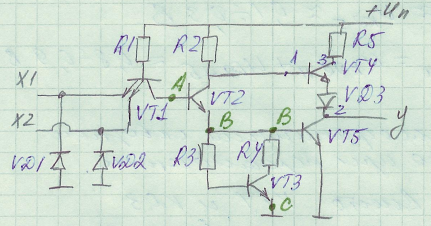 +Uп
R1
R2
R5
1
3
VT4
X1
A
VT2
VD3
VT1
2
X2
B
B
VT5
y
VD1
VD2
R3
R4
VT3
C